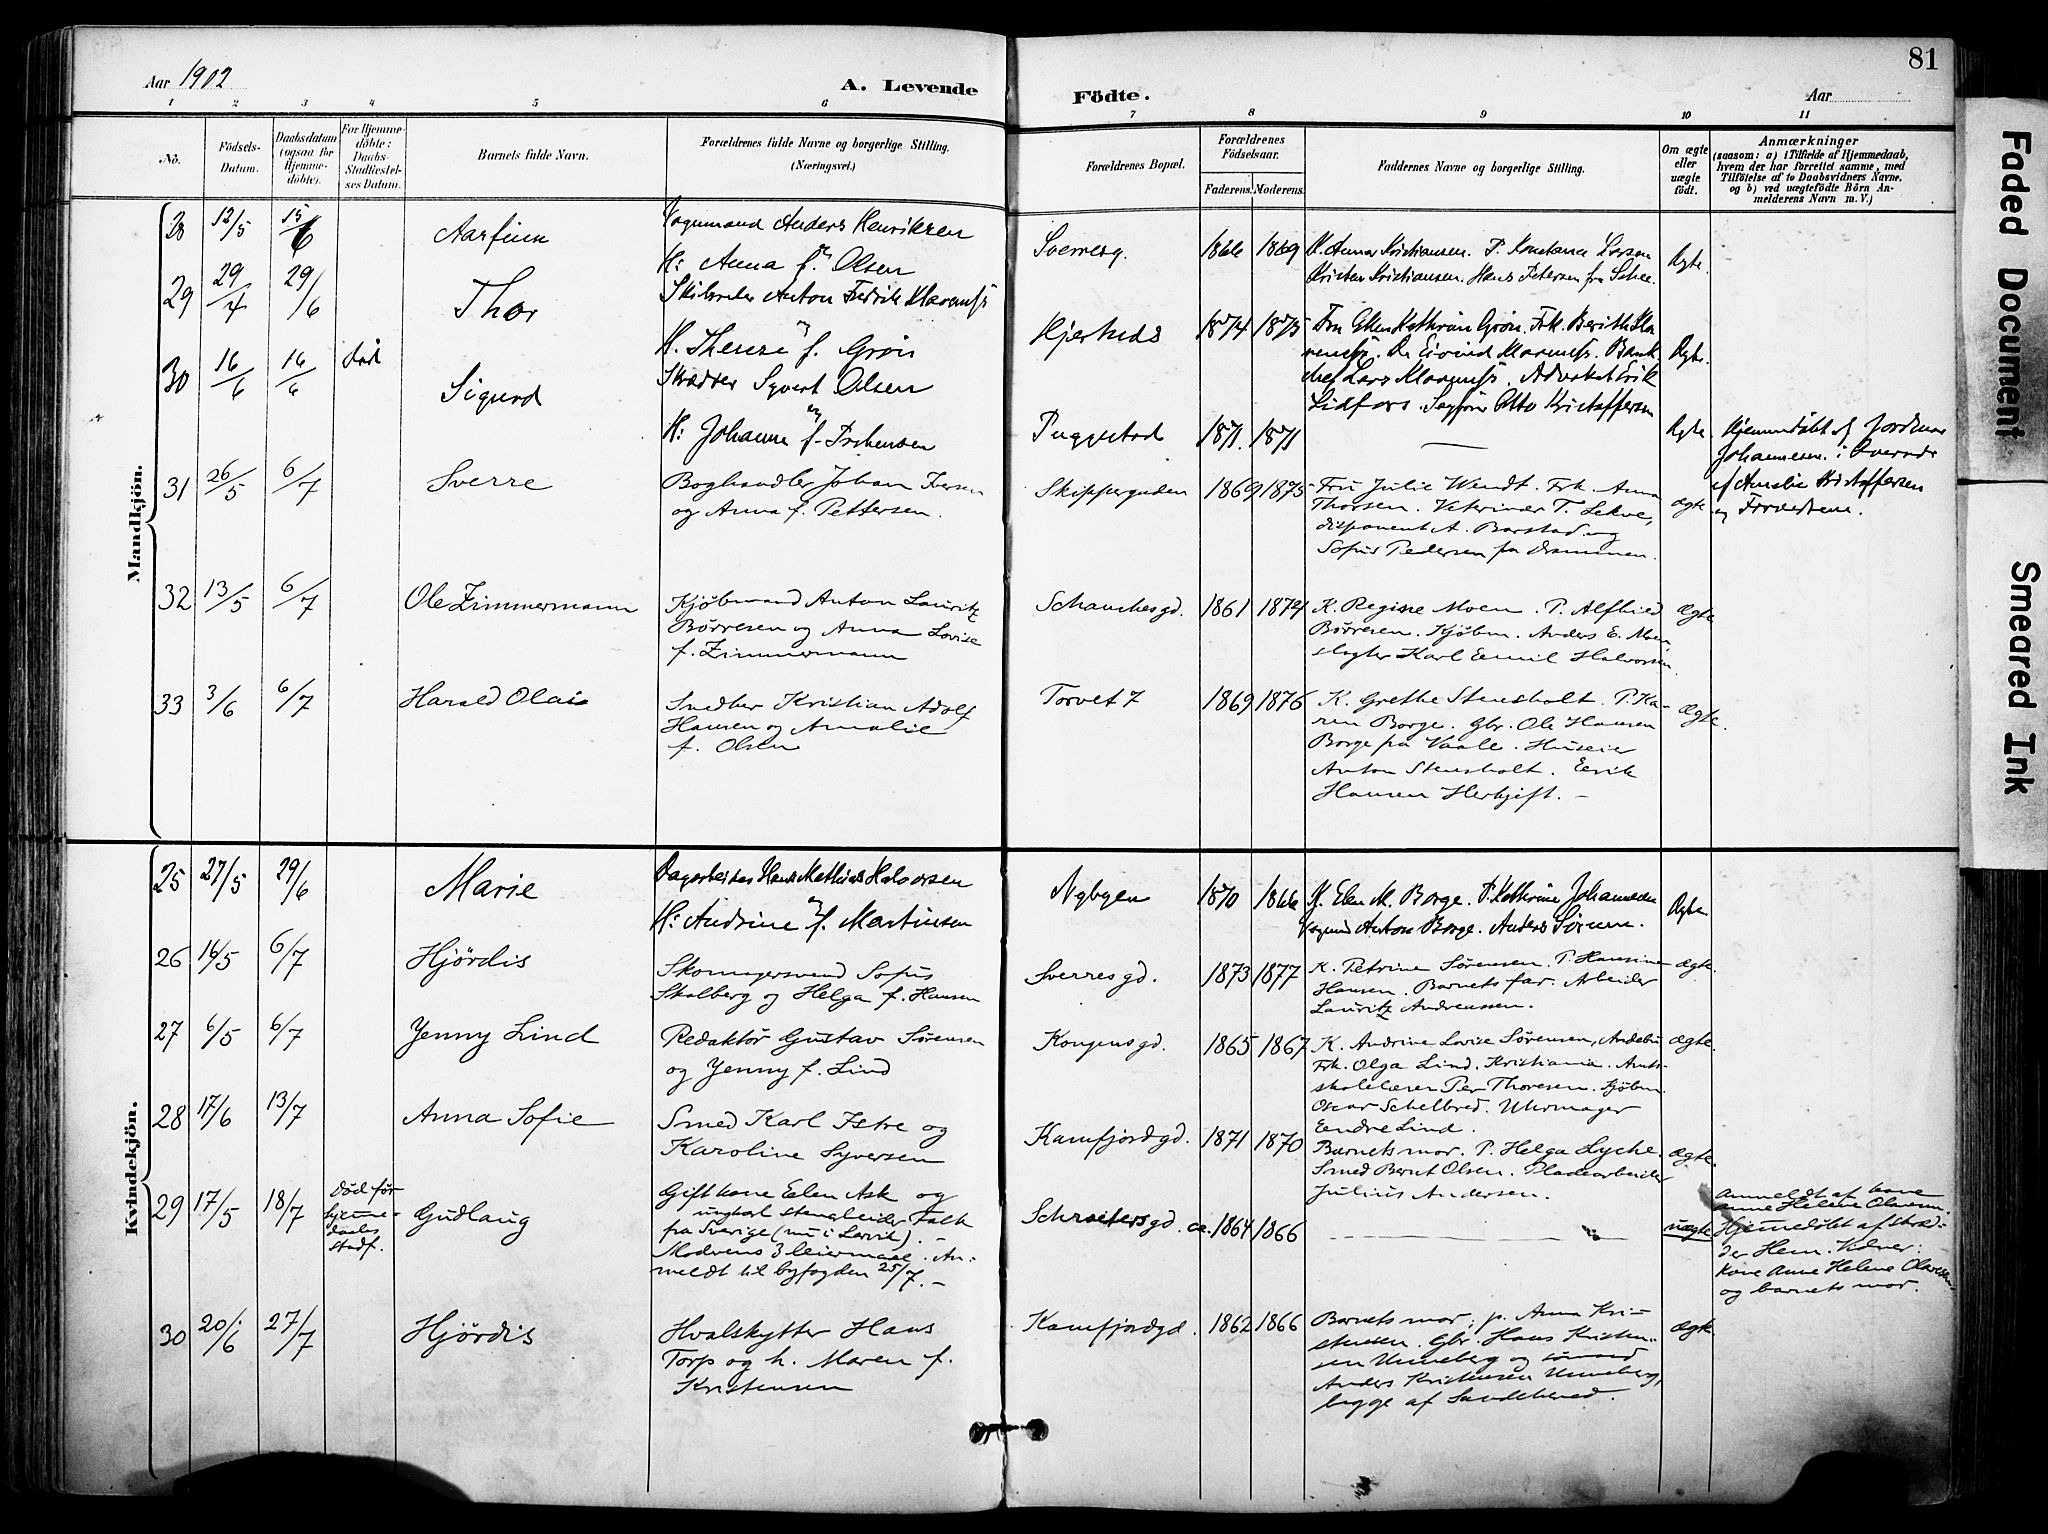 Aar 1902
A. Levende
Födte.
Aar
81
1 2 3 4 5 6 7 8 9 10 11
No.
Födsels-
Datum.
Daabsdatum
(ogsaa for
Hjemme-
döbte).
For Hjemme-
döbte:
Daabs-
Stadfæstel-
ses Datum.
Barnets fulde Navn.
Forældrenes fulde Navne og borgerlige Stilling.
(Næringsvei.)
Forældrenes Bopæl.
Forældrenes
Födselsaar.
Faderens. Moderens.
Faddernes Navne og borgerlige Stilling.
Om ægte
eller
uægte
født.
Anmærkninger
(saasom: a) i Tilfælde af Hjemmedaab,
hvem der har forrettet samme, med
Tilföielse af to Daabsvidners Navne,
og b) ved uægtefödte Börn An-
melderens Navn m. V.)
Mandkjön.
28 12/5 15/6 Aarfinn
Vognmand Anders Henriksen
H: Anna f. Olsen
1866 1869
K. Anna Kristiansen. P. Konstance Larsen
Kristen Kristiansen. Hans Petersen fra
Ægte.
29 29/4 29/6 Thor
Anton Fredrik
H. Therese f. Grøn
1874 1875
Fru Ellen Kathrine Grøn. Frk. Berith
Eivind Bank-
chef Lars Advokat Erik
Lidfors. Otto Kristoffersen
Ægte.
30 16/6 16/6 Død Sigurd
Skrædder Syvert Olsen
H: Johanne f.
Puggestad 1871. 1871 —
Ægte.
Hjemmedøbt af Jordmor
Johannesen
af Amalie Kristoffersen
og Forældrene.
31 26/5 6/7 Sverre
Boghandler Johan Iversen
og Anna f. Pettersen.
Skippergaden 1869 1875
Fru Julie Wendt. Frk. Anna
Thorsen. Veterinær T. Lekve,
disponent A. Barstad og
Sofus Pedersen fra Drammen.
ægte
32 13/5 6/7 Ole Zimmermann
Kjøbmand Anton Lauritz
Børresen og Anna Lovise
f. Zimmermann
Schanchesgd. 1861 1874
K. Regine Moen. P. Alfhild
Børresen. Kjøbm. Anders E. Moen
slagter Karl Emil Halvorsen
Ægte
33 3/6 6/7 Harald Olai
Snedker Kristian Adolf
Hansen og Amalie
f. Olsen
Torvet 7 1869 1876
K. Grethe Stensholt. P. Ka-
ren Borge. Gbr. Ole Hansen
Borge fra Vaale. Huseier
Anton Stensholt. Eerik
Hansen
Ægte.
Kvindekjön.
25 27/5 29/6 Marie
Dagarbeider Hans Mathias Halvorsen
H: Andrine f. Martinsen
Nybyen 1870 1866
K. Elen M. Borge. P. Kathrine Johannesen
Anton Borge. Anders Sørensen.
Ægte
26 16/5 6/7 Hjørdis
Skomagersvend Sofus
Skolberg og Helga f. Hansen
Sverresgd. 1873 1877
K. Petrine Sørensen. P. Hansine
Hansen. Barnets far. Arbeider
Lauritz Andreassen.
Ægte.
27 6/5 6/7 Jenny Lind
Redaktør Gustav Sørensen
og Jenny f. Lind
Kongensgd. 1865 1867
K. Andrine Lovise Sørensen, Andebu
Frk. Olga Lind. Kristiania. Amts-
skolelærer Per Thoresen. Kjøbm.
Oscar Schelbred. Uhrmager
Eendre Lind.
Ægte.
28 17/6 13/7 Anna Sofie
Smed Karl Istre og
Karoline Syversen
Kamfjordgd. 1871 1870
Barnets mor. P. Helga Lyche.
Smed Bernt Olsen. Pladearbeider
Julius Andersen.
Ægte.
29 17/5 18/7
Død før
hjemme-
daabs
stadf.
Gudlaug
Gift kone Elen Ask og
ungkarl Falk
fra Sverige (nu i Larvik). -
Modrens 3 leiermaal. An-
meldt til byfogden 25/7. -
Schrøitersgd. ca. 1864 1866
uægte
Anmeldt af kone
Anne Helene Olavesen.
Hjemmedøbt af skræd-
der Hem. Vidner:
Kone Anne Helene Olavesen
og barnets mor.
30 20/6 27/7 Hjørdis
Hvalskytter Hans
Torp og h. Maren f.
Kristensen
Kamfjordgd. 1862 1866
Barnets mor; p. Anna Kri-
stensen. Gbr. Hans Kristen-
sen Unneberg og sømand
Anders Kristensen Unneberg,
begge af Sandeherred.
ægte
Faded Document
Smeared Ink